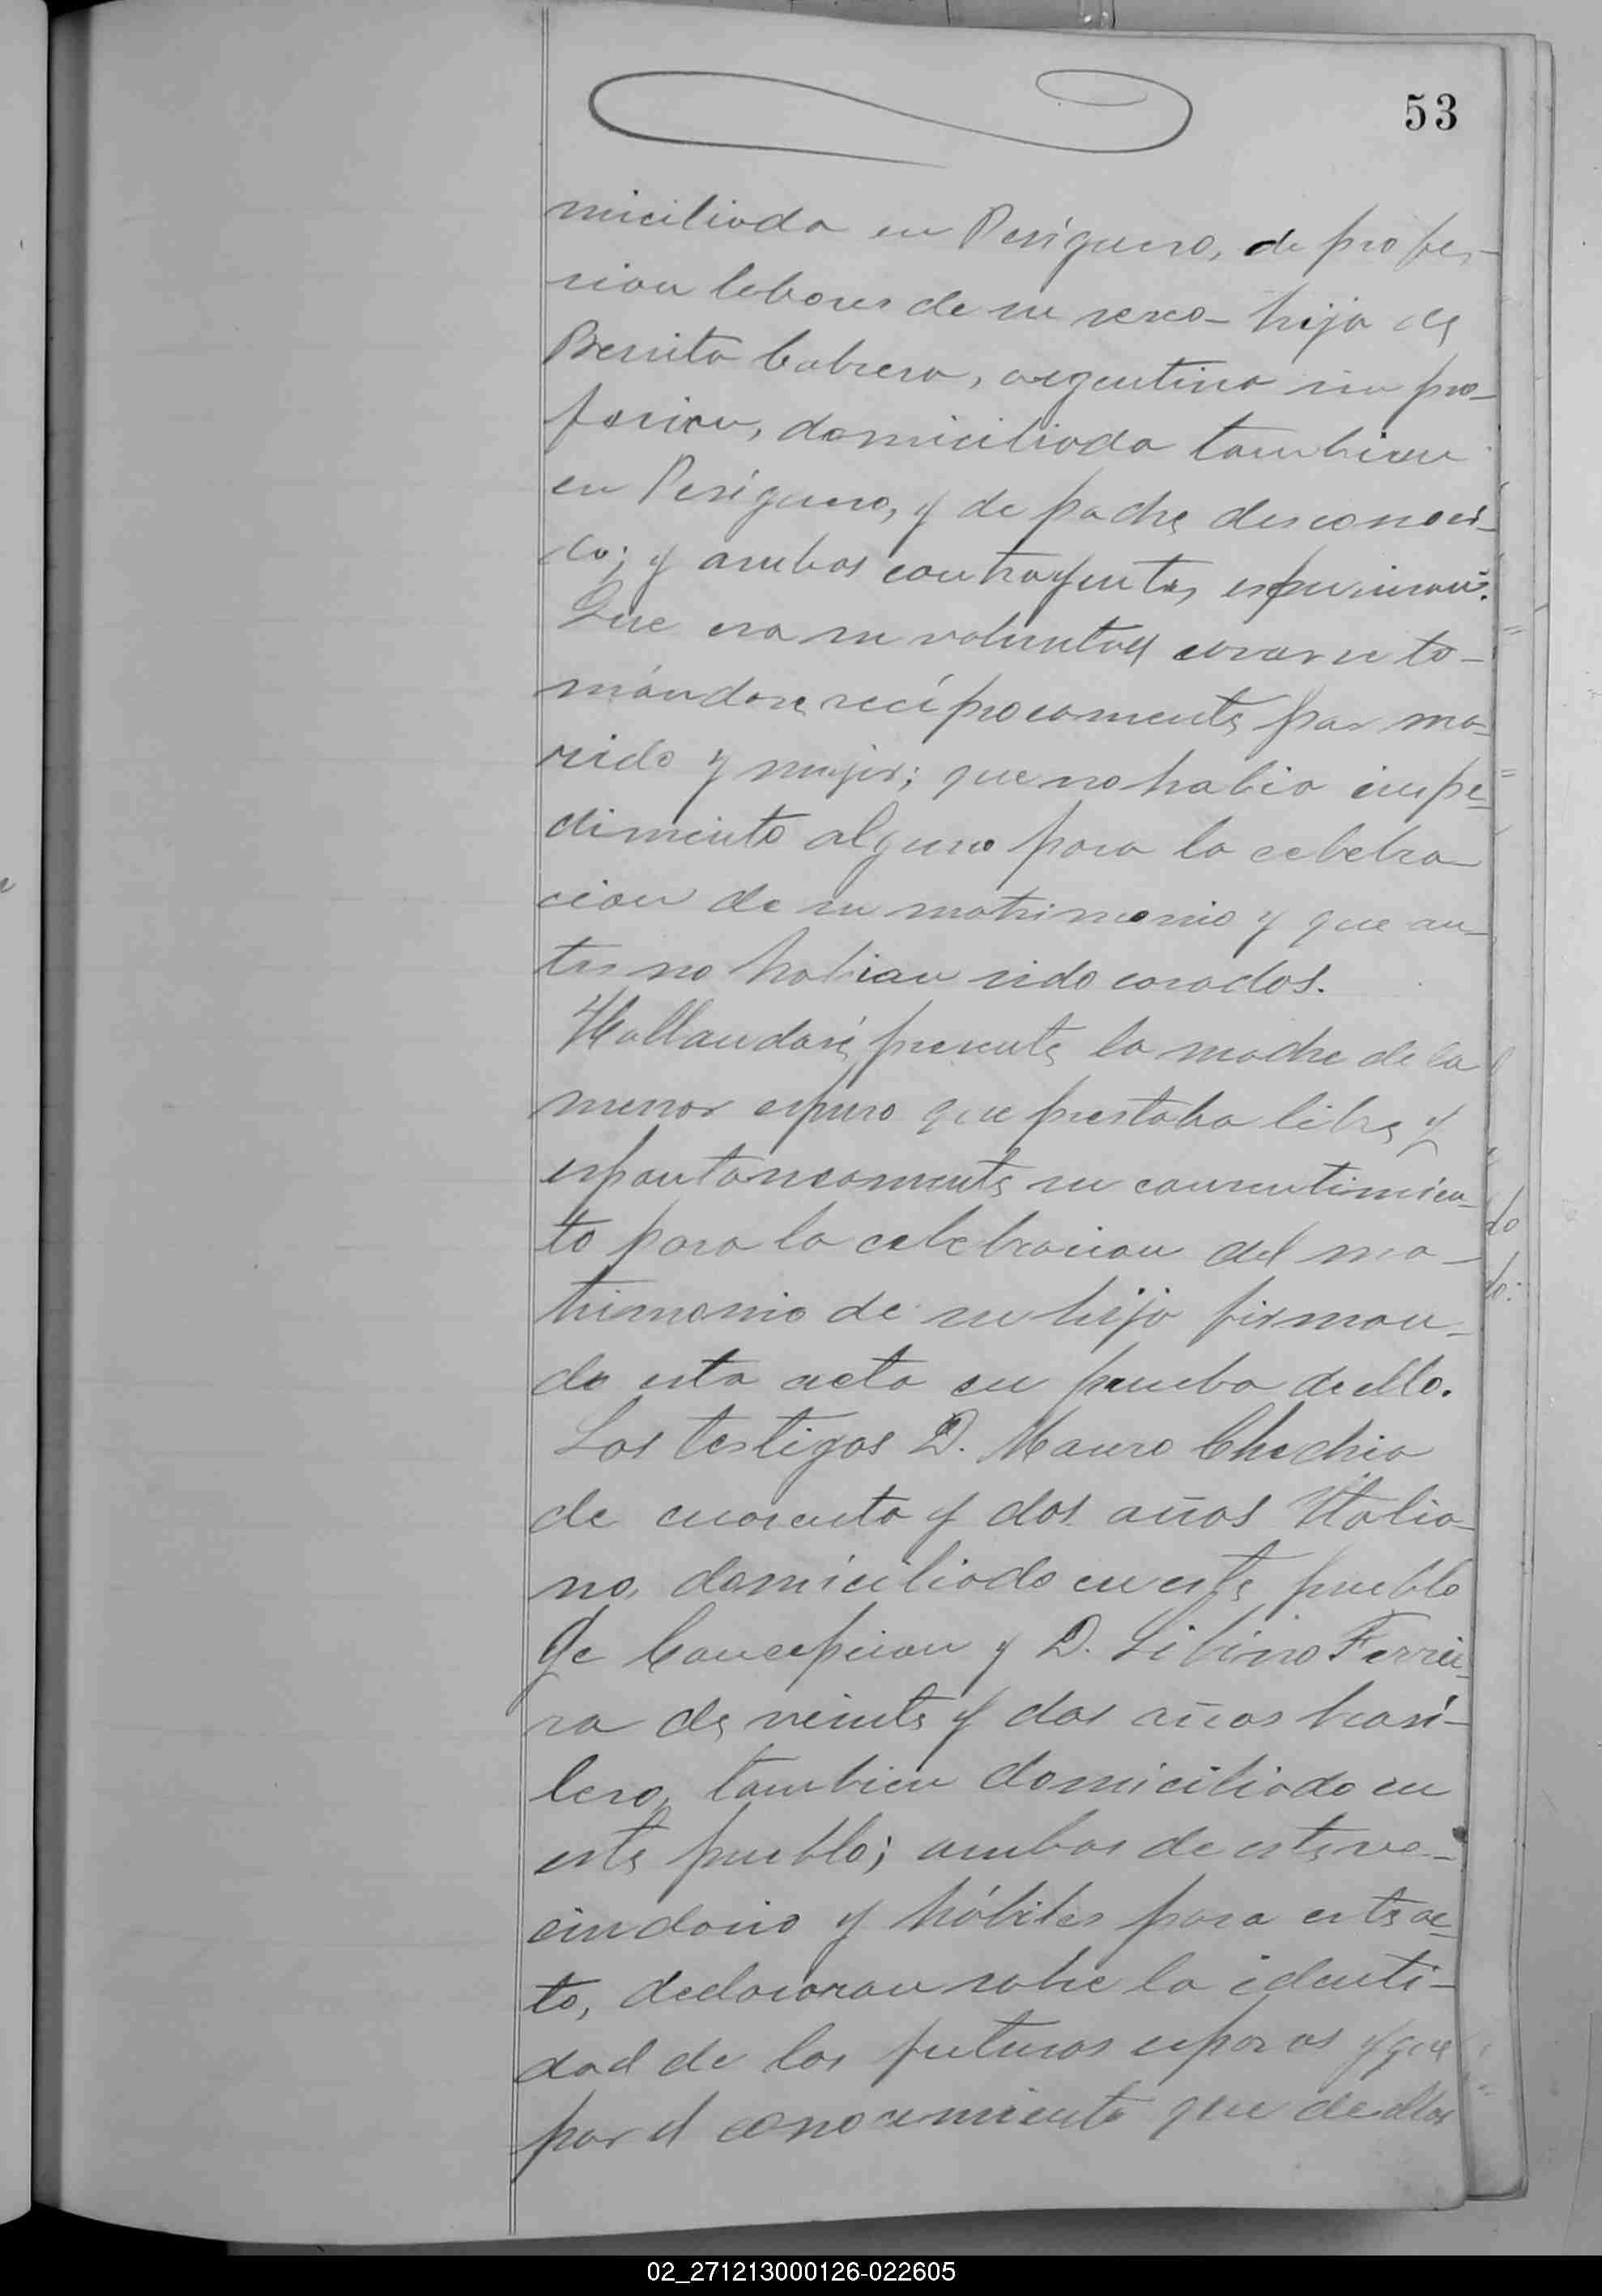 53
miciliada en Persiguero, de profe-
sion labores de su sexo- hija de
Benita Cabrera, argentina sin pro-
fesion, domiciliada tambien
en Persiguero, y de padre desconoci-
do; y ambos contrayentes espusieron:
Que era su voluntad casarse to-
mándose recíprocamente por ma-
rido y mujer; que no habia impe-
dimento alguno para la celebra-
cion de su matrimonio y que an-
tes no habian sido casados.
Hallandose presente la madre de la
menor espuso que prestaba libre y
espontaneamente su consentimien-
to para la celebracion del ma-
trimonio de su hija firman-
do esta acta en prueba de ello.
Los testigos D. Mauro Chechia
de cuarenta y dos años Italia-
no, domiciliado en este pueblo
de Concepcion y D. Libino Ferrei-
ra de veinte y dos años brasi-
lero, tambien domiciliado en
este pueblo; ambos de este ve-
cindario y hábiles para este ac-
to, declararan sobre la identi-
dad de los futuros esposos y que
por el conocimiento que de ellos
02_271213000126-022605